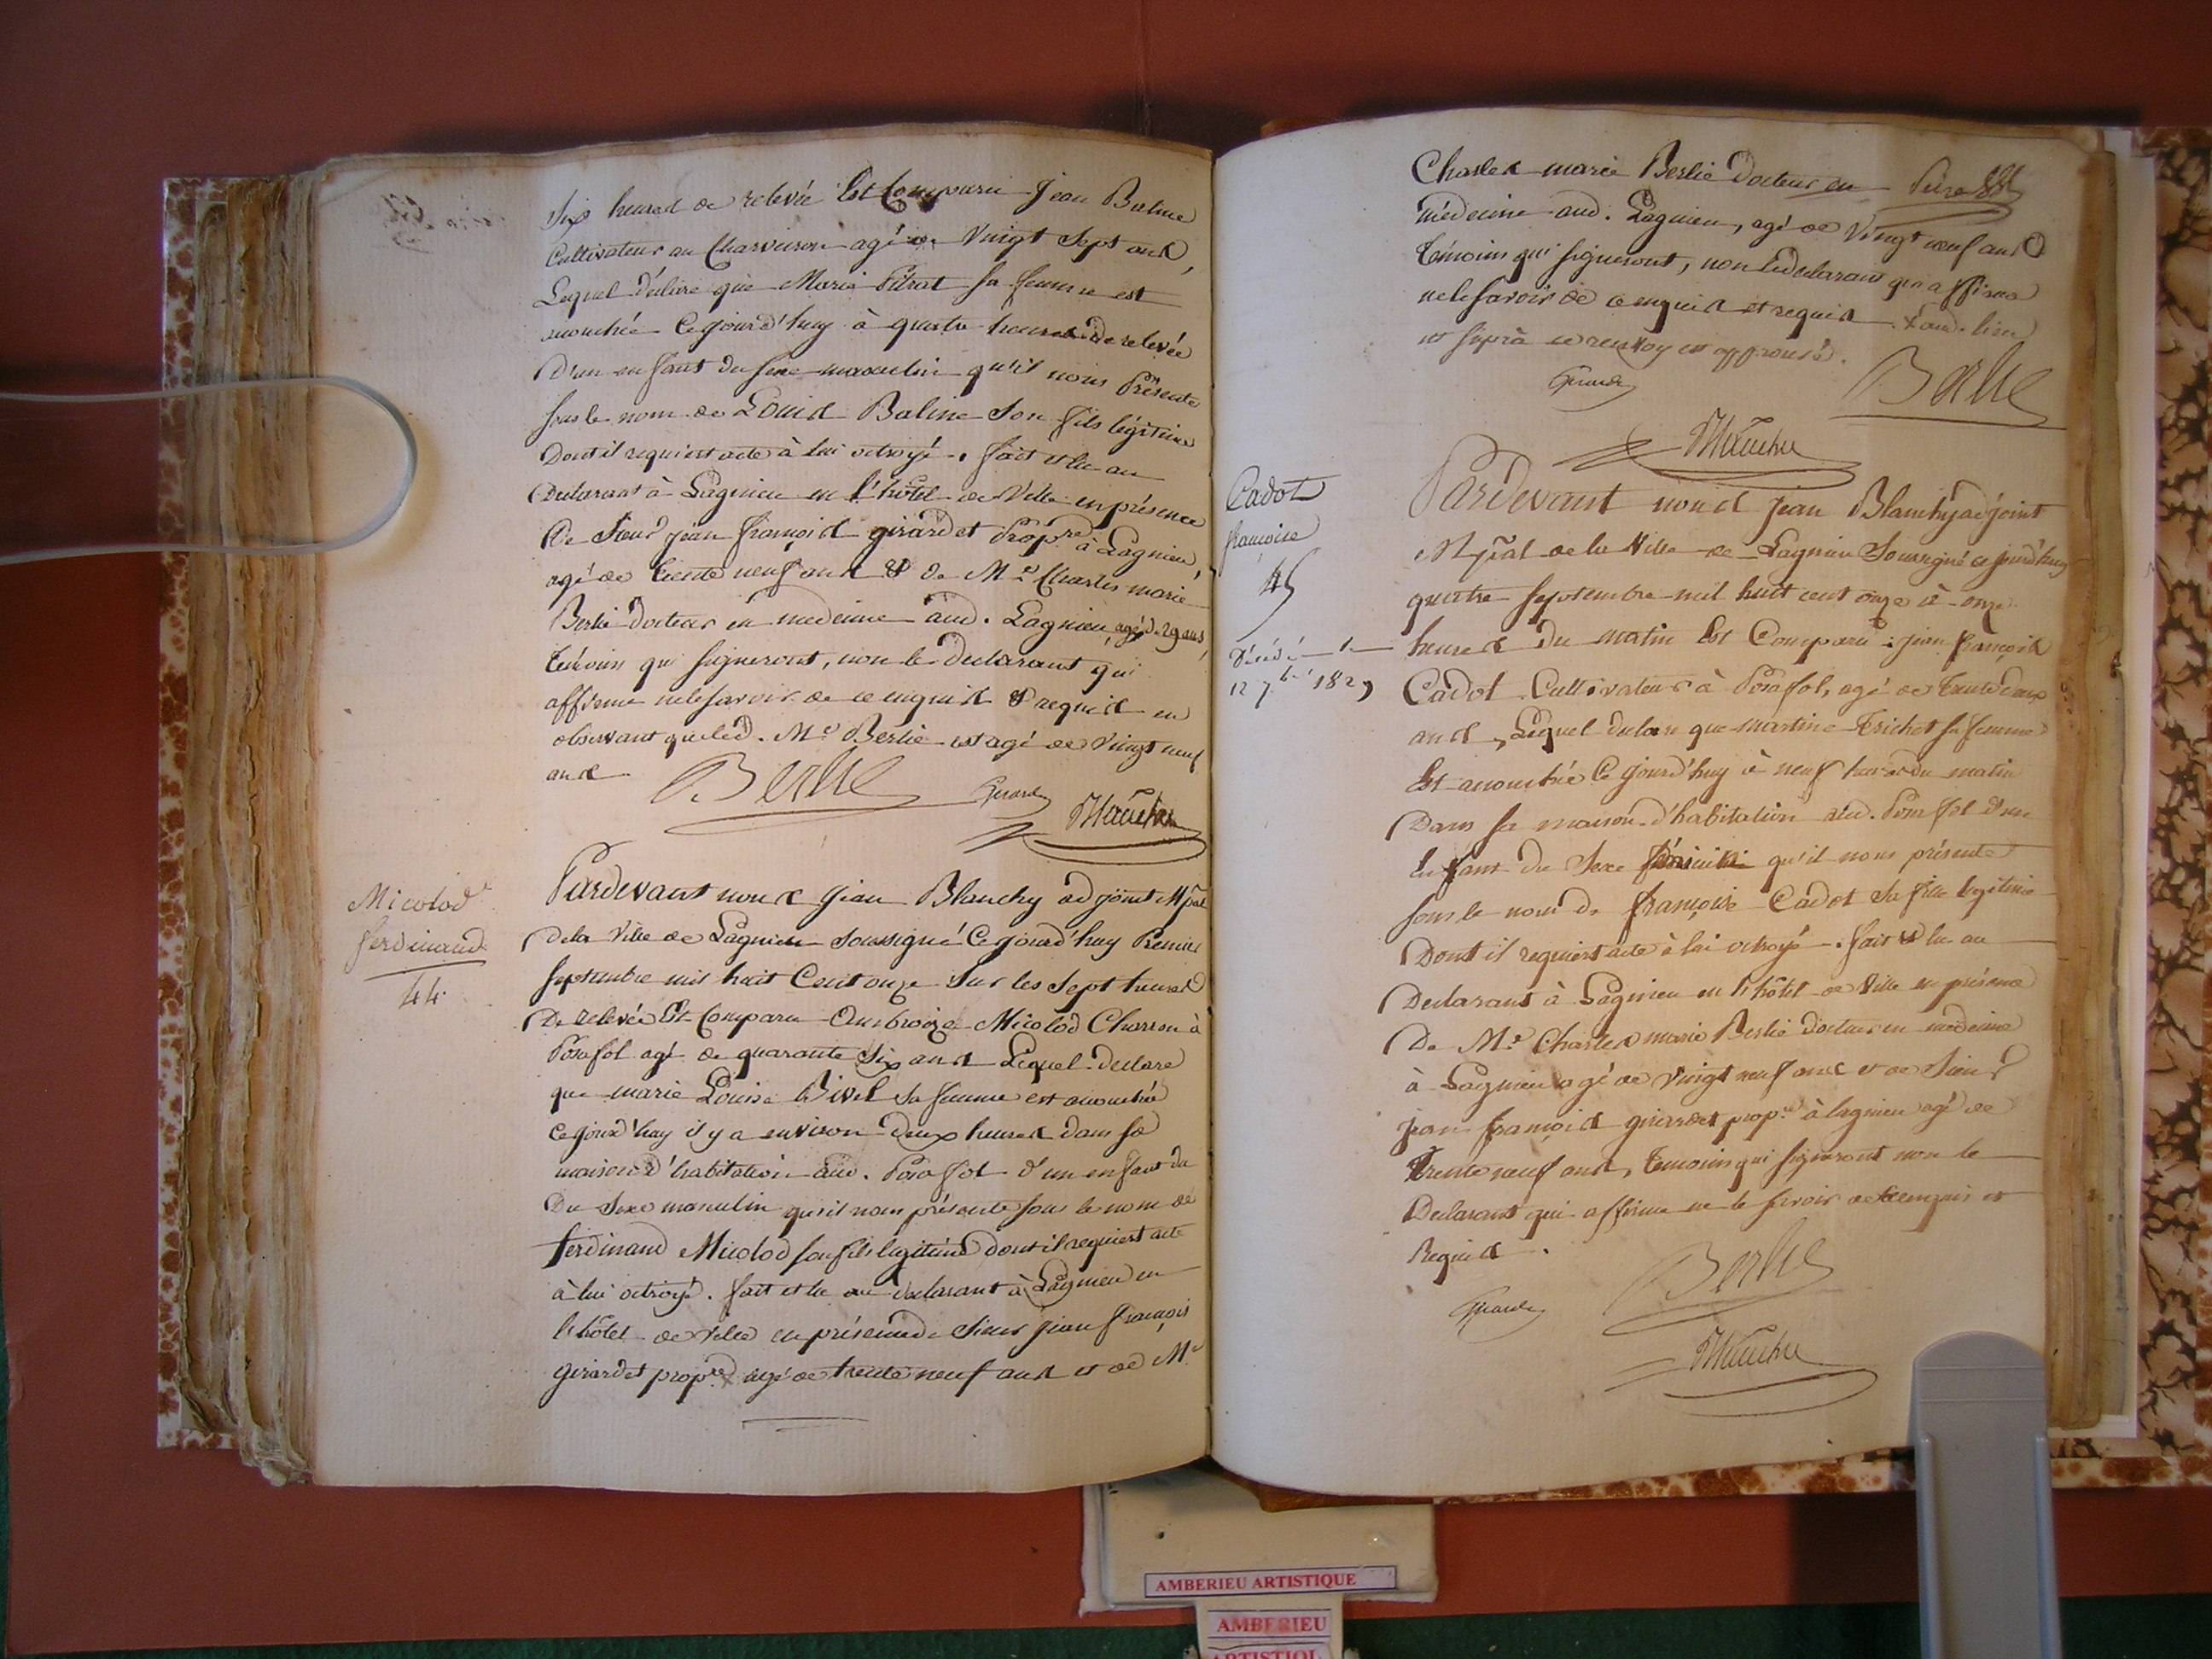 Six heures de relevée Est Comparu Jean Balme
Cultivateur au Charveiron agé de Vingt Sept ans,
Lequel déclare que Marie Pitrat sa femme est
accouchée Cejourd'huy à quatre heures de relevée
D'un enfant du sexe masculin qu'il nous Présente
sous le nom de Louis Balme Son fils légitime
Dont il requiert acte à lui octroyé. fait et lu au
Declarant à Lagnieu en l'hôtel de Ville en présence
De Sieur jean françois girardet Propre à Lagnieu,
agé de trente neuf ans & de Mr Charles marie
Berlié docteur en medecine aud. Lagnieu, agé d. 29 ans,
témoins qui signeront, non le declarant qui
affirme ne le savoir de ce enquis & requis en
observant que led. Mr Berlié est agé de Vingt neuf
ans
Berlié Girard Blanchy
Micolod
ferdinand
44
Pardevant nous Jean Blanchy adjoint Mpal
de la Ville de Lagnieu soussigné Cejourd'huy Premier
septembre mil huit Cent onze Sur les Sept heures
De relevée Est Comparu Ambroize Micolod Charron à
Posafol agé de quarante Six ans Lequel declare
que marie Louise Bivel sa femme est accouchée
Cejourd'huy il y a environ deux heures dans sa
maison d'habitation aud. Posafol d'un enfant du
Du Sexe masculin qu'il nous présente sous le nom de
ferdinand Micolod son fils legitime dont il requiert acte
à lui octroyé. fait et lu au declarant à Lagnieu en
l'hôtel de Ville en présence de Sieur jean françois
girardet propre x agé de trente neuf ans et de Mr
Charles marie Berlié Docteur en
médecine aud. Lagnieu, agé de Vingt neuf ans
témoins qui signeront, non le declarant qui affirme
ne le savoir de ce enquis et requis x aud. lieu
et suprà ce renvoy est approuvé.
Girard Berlié
Blanchy
Cadot
françoise
45
Décédé le
12 7bre 1829
Pardevant nous Jean Blanchy adjoint
Mpal de la Ville de Lagnieu Soussigné cejourd'huy
quatre septembre mil huit cent onze à onze
heures du matin Est Comparu jean françois
Cadot Cultivateur à Posafol, agé de trente deux
ans, Lequel declare que martine Trichot sa femme
Est accouchée Cejourd'huy à neuf heures du matin
Dans sa maison d'habitation aud. Posafol d'un
Enfant du Sexe féminin qu'il nous présente
sous le nom de françoise Cadot sa fille legitime
Dont il requiert acte à lui octroyé. fait & lu au
Declarant à Lagnieu en l'hôtel de Ville en présence
De Mr Charles marie Berlié docteur en medecine
à Lagnieu agé de vingt neuf ans et de Sieur
jean françois girardet propre à lagnieu agé de
trente neuf ans, temoins qui signeront non le
Declarant qui affirme ne le savoir de ce enquis et
Requis.
Girard Berlié
Blanchy
AMBERIEU ARTISTIQUE
AMBERIEU
ARTISTIQ